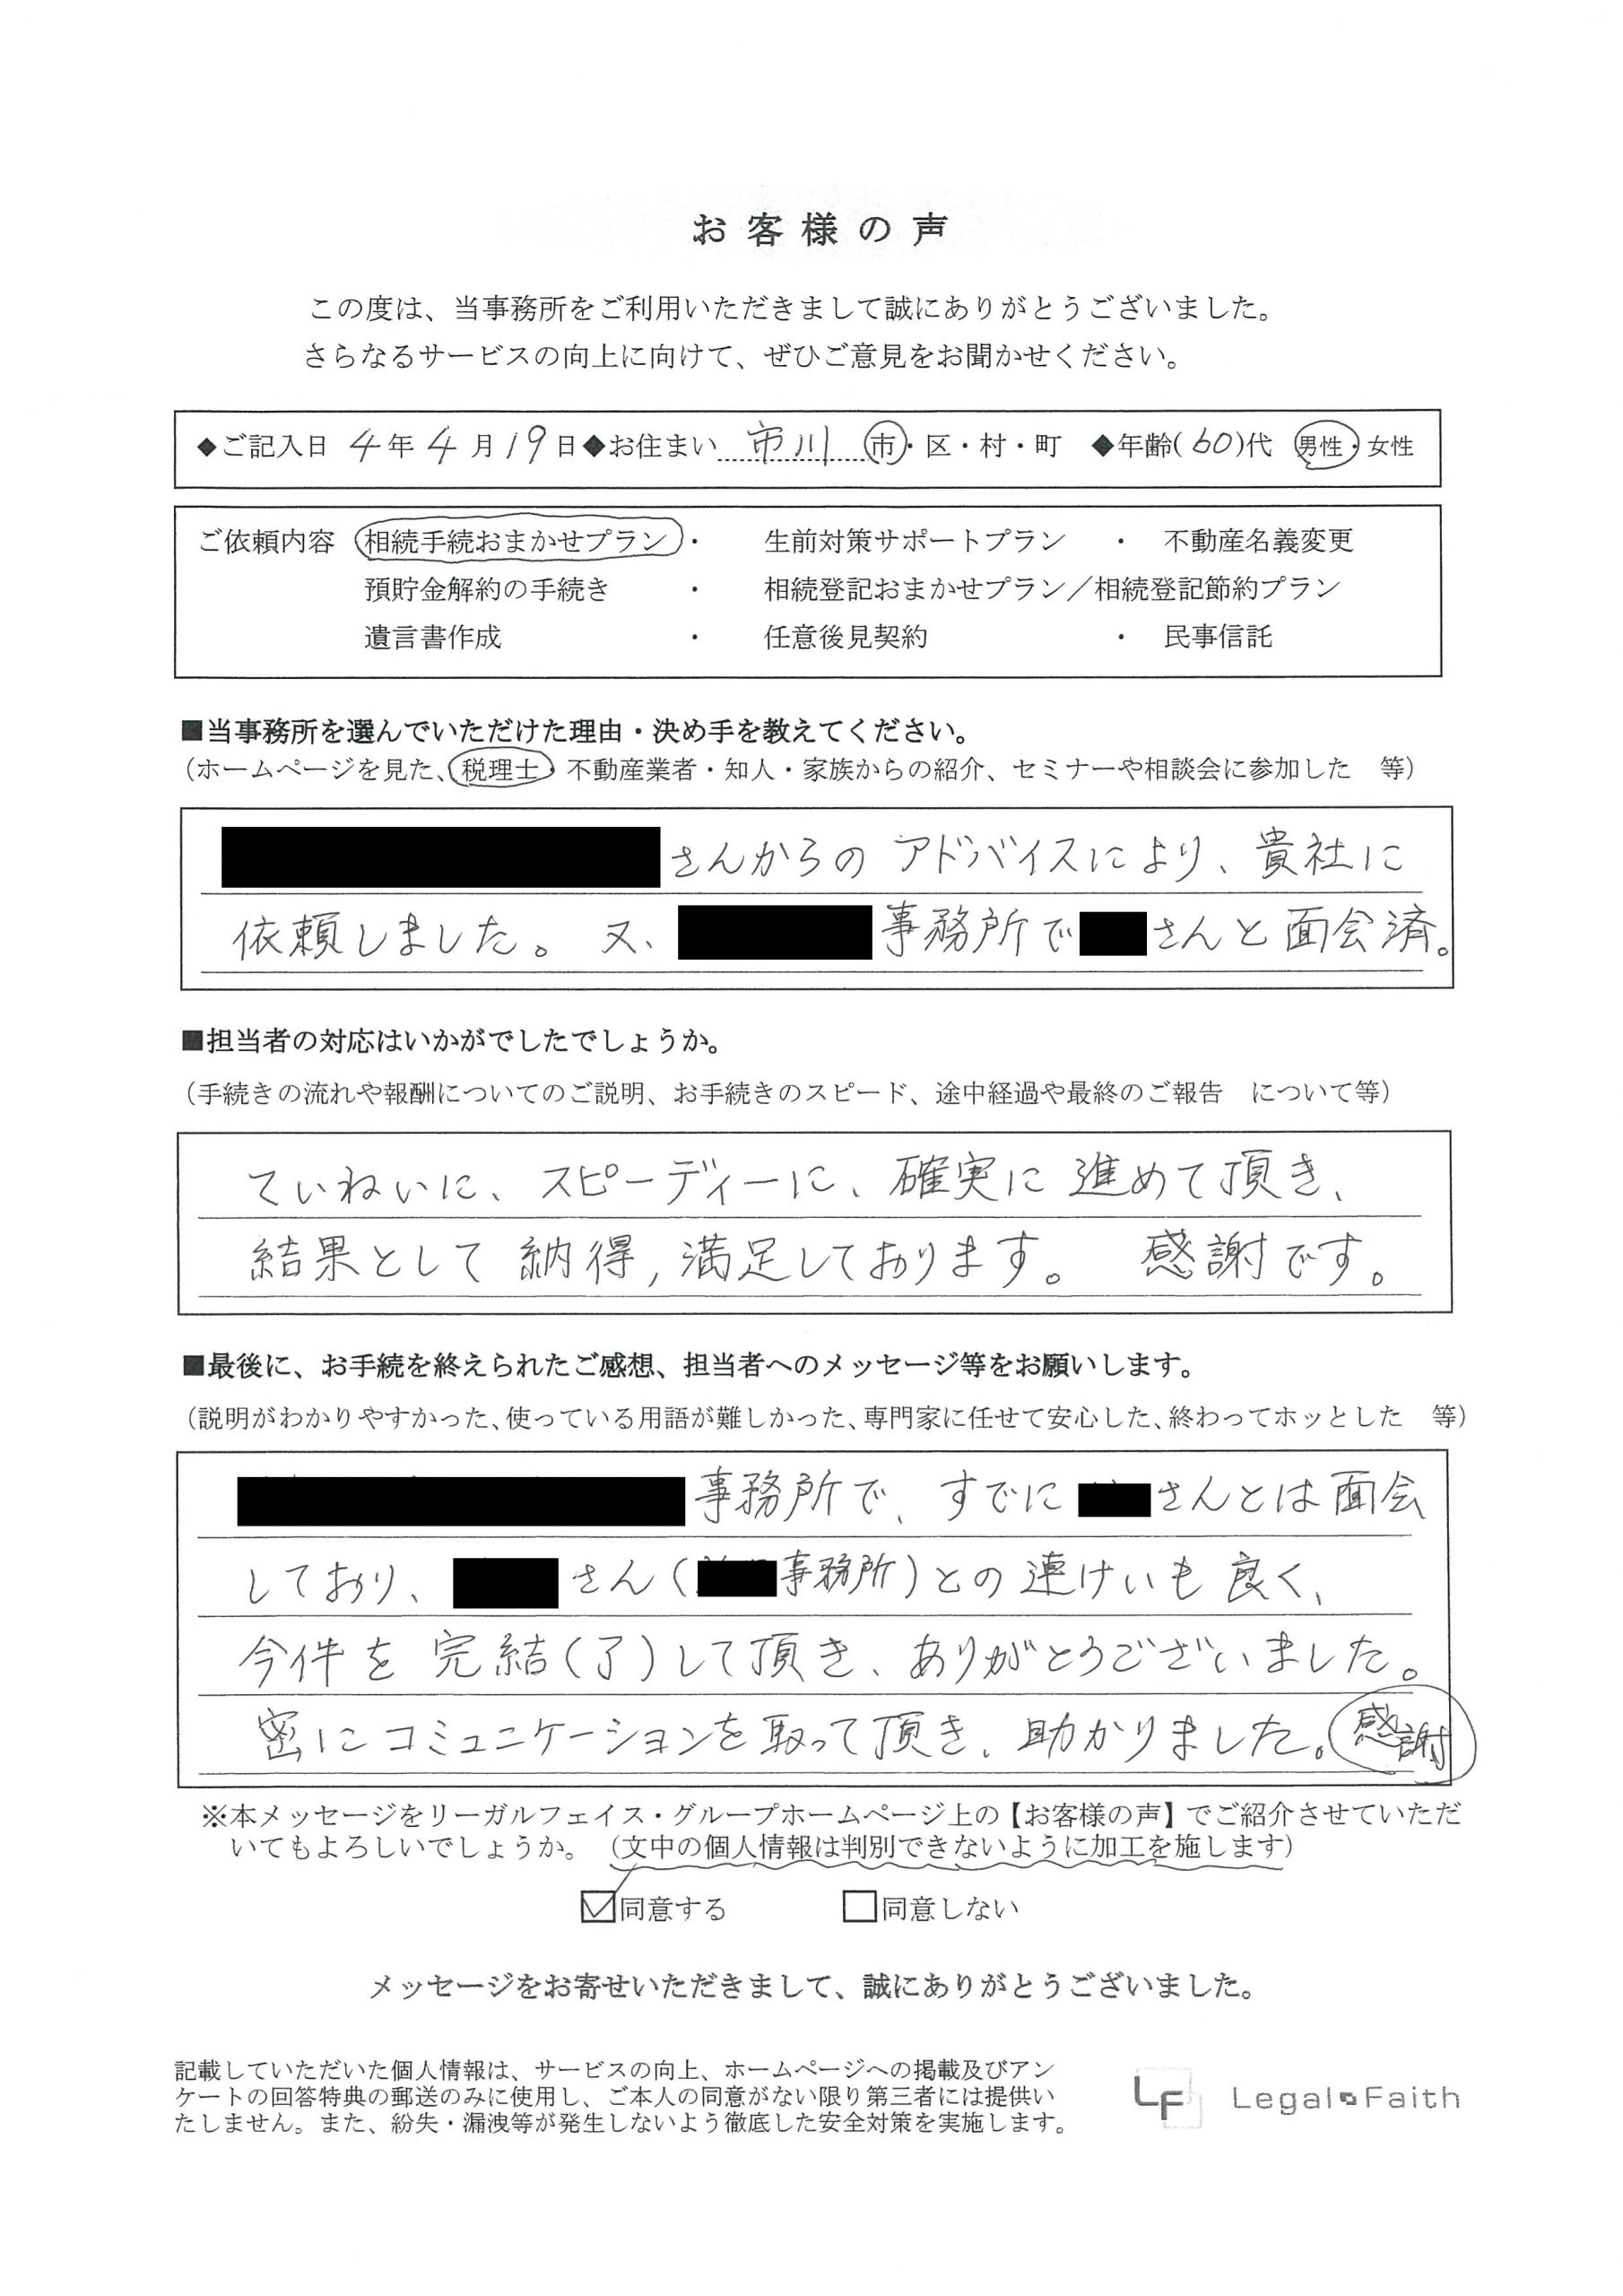 お客様の声
この度は、当事務所をご利用いただきまして誠にありがとうございました。
さらなるサービスの向上に向けて、ぜひご意見をお聞かせください。
◆ご記入日 4年4月19日◆お住まい 市川 市・区・村・町 ◆年齢(60)代 男性・女性
ご依頼内容 相続手続おまかせプラン ・ 生前対策サポートプラン ・ 不動産名義変更
預貯金解約の手続き ・ 相続登記おまかせプラン／相続登記節約プラン
遺言書作成 ・ 任意後見契約 ・ 民事信託
■当事務所を選んでいただけた理由・決め手を教えてください。
（ホームページを見た、税理士・不動産業者・知人・家族からの紹介、セミナーや相談会に参加した 等）
さんからの アドバイスにより、貴社に
依頼しました。又、事務所でさんと面会済。
■担当者の対応はいかがでしたでしょうか。
（手続きの流れや報酬についてのご説明、お手続きのスピード、途中経過や最終のご報告 について等）
ていねいに、スピーディーに、確実に進めて頂き、
結果として納得,満足しております。 感謝です。
■最後に、お手続を終えられたご感想、担当者へのメッセージ等をお願いします。
（説明がわかりやすかった、使っている用語が難しかった、専門家に任せて安心した、終わってホッとした 等）
事務所で、すでにさんとは面会
しており、さん（事務所）との連けいも良く、
今件を完結（了）して頂き、ありがとうございました。
密にコミュニケーションを取って頂き、助かりました。感謝
※本メッセージをリーガルフェイス・グループホームページ上の【お客様の声】でご紹介させていただ
いてもよろしいでしょうか。（文中の個人情報は判別できないように加工を施します）
☑同意する □同意しない
メッセージをお寄せいただきまして、誠にありがとうございました。
記載していただいた個人情報は、サービスの向上、ホームページへの掲載及びアン
ケートの回答特典の郵送のみに使用し、ご本人の同意がない限り第三者には提供い
たしません。また、紛失・漏洩等が発生しないよう徹底した安全対策を実施します。
LF Legal Faith